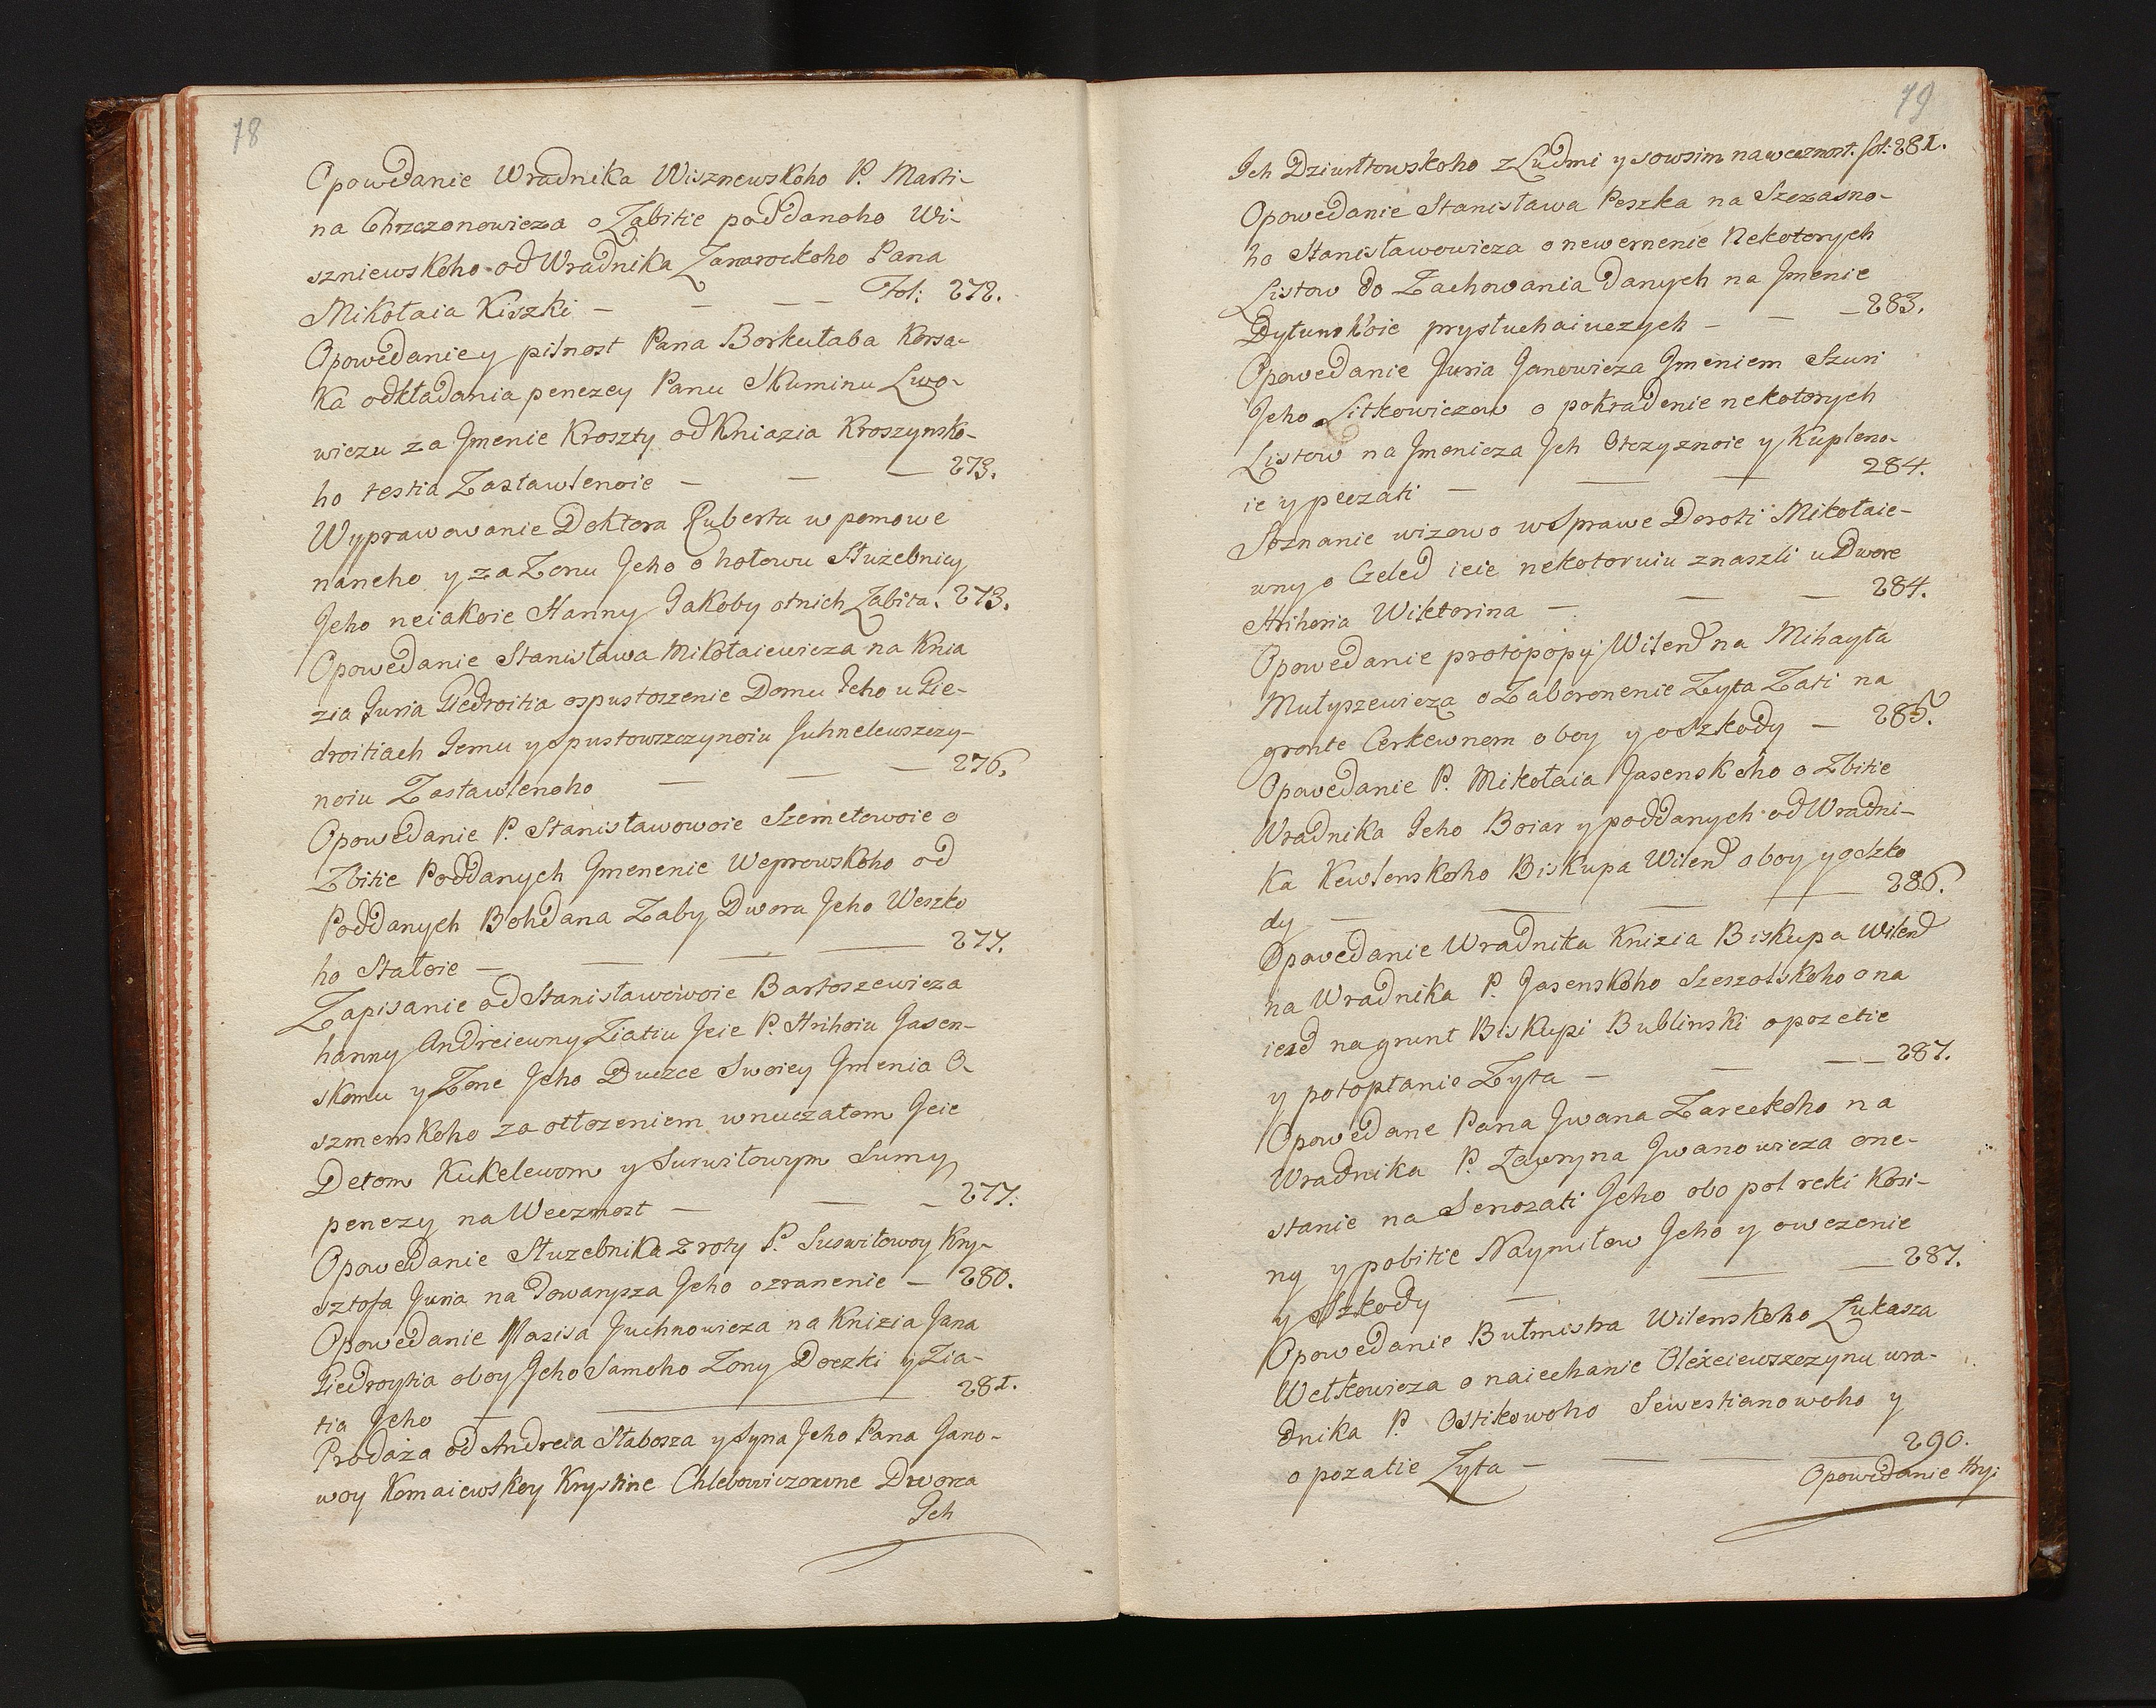 78
Opowedanie Wradnika Wisznewskoho P. Marti-
na Chrzczonowicza o Zabitie poddanoho Wi-
szniewskoho od Wradnika Pana
Mikołaia Kiszki – – – – Fol: 272.
Opowedanie y pilnost Pana Borkułaba Korsa-
ka odkładania penezey Panu Skuminu Lwo-
wiczu za Jmenie Kroszty od Kniazia Kroszynsko-
ho testia Zastawlenoie – – – 273.
Wyprawowanie Doktora Ruberta w pomowe
naneho y za Zonu Jeho o hołowu Służebnicy
Jeho neiakoie Hanny Jakoby otnich Zabita. 273.
Opowedanie Stanisława Mikołaiewicza na Knia
zia Juria Giedroitia ospustoszenie Domu Jeho u Gie-
droitiach Jemu y opustowszczynoiu Juhnelewszczy-
noiu Zastawlenoho – – – 276.
Opowedanie P. Stanisławowoie Szemetowoie o
Zbitie Poddanych Jmenenie Weprowskoho od
Poddanych Bohdana Zaby Dwora Jeho Weszko
ho Stałoie – – – – 277.
Zapisanie od Stanisławowoie Bartoszewicza
hanny Andreiewny Ziatiu Jeie P. Hrihoiu Jasen-
skomu y Zone Jeho Duczce Swoiey Jmenia O-
szmenskoho za otłozeniem wnuczatom Jeie
Detom Kukelewom y Surwiłowym Sumy
penezy na Weecznost – – – 277.
Opowedanie Służebnika z roty P. Suswiłowoy Kry-
sztofa Juria na Towarysza Jeho ozranenie – 280.
Opowedanie Juchnowicza na Knizia Jana
Giedroytia oboy Jeho Samoho Zony Doczki y Zia-
tia Jeho – – 281.
Prodaża od Andreia Stabosza y Syna Jeho Pana Jano-
woy Komaiewskoy Krystine Chlebowiczowne Dworca
Jch
79
Jch Dziwiłtowskoho z Ludmi y sowsim na wecznost. fol: 281.
Opowedanie Stanisława Peszka na Szczasno-
ho Stanisławowicza o newernenie Nekotorych
Listow do Zachowania danych na Jmenie
prysłuchaiuczych – – – 283.
Opowedanie Juria Janowicza Jmeniem Szuri
Jeho Litkowiczow o pokradenie nekotorych
Listow na Jmenicza Jch Otczyznoie y Kupleno-
ie y peczati – – – 284.
Soznanie wizowo w Sprawe Doroti Mikołaie-
wny o Czeled ieie nekotoruiu znaszli u Dwore
Hrihoria Wiktorina – – – 284.
Opowedanie protopopy Wilend na Mihayła
Mułyszewicza o Zaboronenie Zyta Zati na
gronte Cerkewnem o boy y o szkody – 285.
Opowedanie P. Mikołaia Jasenskoho o Zbitie
Wradnika Jeho Boiar y poddanych od Wradni-
ka Kewlenskoho Biskupa Wilend o boy y oszko
dy – – – – 286.
Opowedanie Wradnika Knizia Biskupa Wilend
na Wradnika P. Jasenskoho Szeszolskoho o na
iezd na grunt Biskupi Bublinski o pozetie
y potoptanie Zyta – – – – 287.
Opowedane Pana Jwana Zareckoho na
Wradnika P. Ławryna Jwanowicza one-
stanie na Senozati Jeho obo pol reki Kosi-
ny y pobitie Naymitow Jeho y owczenie
y Szkody – – – 287.
Opowedanie Bułmistra Wilenskoho Łukasza
Wełkowicza o naiechanie Olexeiewszczynu wra-
dnika P. Ostikowoho Sewestianowoho y
o pozatie Zyta – – – – 290.
Opowedanie Hry: